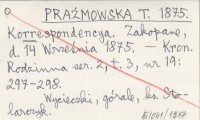 PRAŻMOWSKA T. 1875.
Korrespondencya. Zakopane,
d. 14 Września 1875. — Kron.
Rodzinna ser. 2, t. 3, nr 19:
297-298.
Wycieczki, górale, ks. Sto-
larczyk.